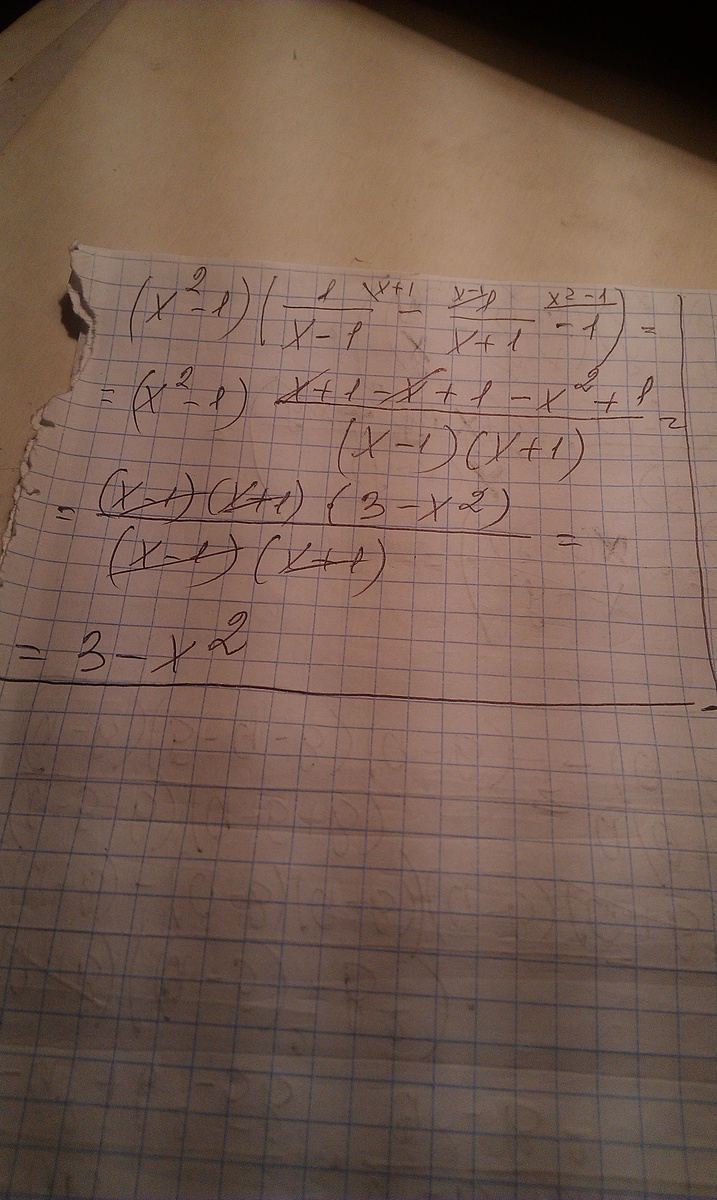 (x² - 1) ( 1/(x-1) \x+1 - x-1/1/(x+1) x²-1/-1 ) =
= (x² - 1) (x + 1 - x + 1 - x² + 1)/((x-1)(x+1)) =
= ((x-1)(x+1)(3 - x²))/((x-1)(x+1)) =
= 3 - x²